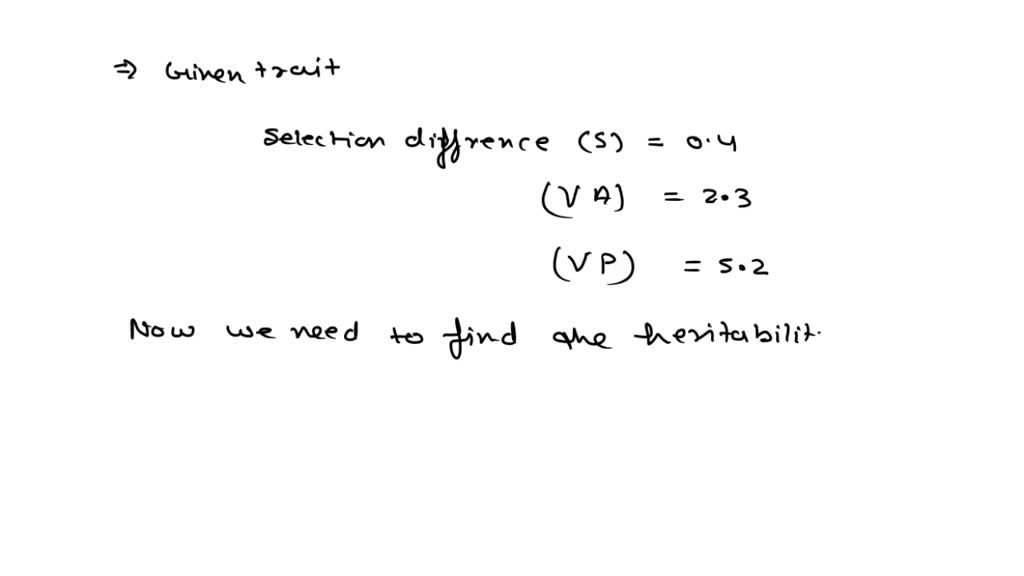 ⇒ Given trait
Selection diffrence (S) = 0.4
(VA) = 2.3
(VP) = 5.2
Now we need to find the heritabilit